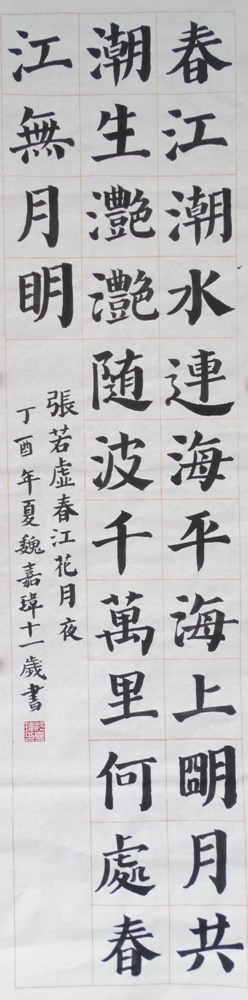 春江潮水連海平海上朙月共
潮生灧灧随波千萬里何處春
江無月眀
張若虛春江花月夜
丁酉年夏魏嘉瑋十一歲書